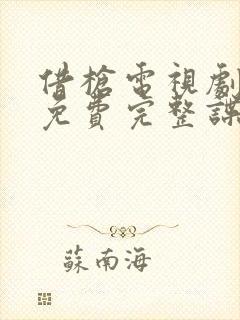 借槍電視劇
免費完整諜
蘇南海